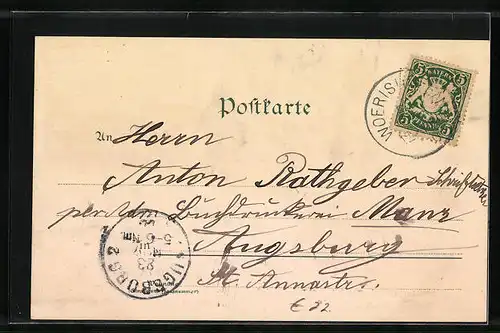 BAYERN
5 5
5 5
PFENNIG
WOERIS
Postkarte
An Herrn
Anton Rathgeber Schriftsetzer
per Adr. Buchdruckerei Manz
Augsburg
St. Annastr.
AUGSBURG 2
23
5-6 Nm.